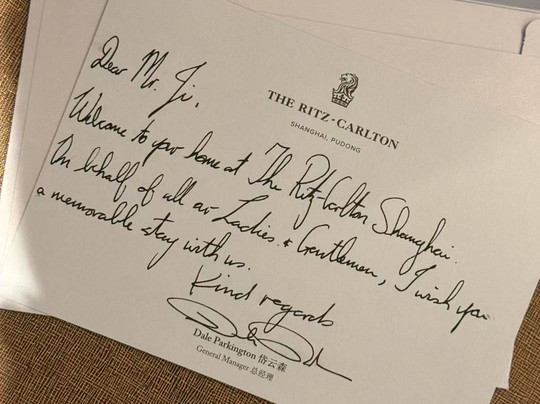 THE RITZ-CARLTON
SHANGHAI, PUDONG
Dear Mr. Ji,
Welcome to your home at The Ritz-Carlton Shanghai.
On behalf of all our Ladies & Gentlemen, I wish you
a memorable stay with us.
Kind regards
Dale Parkington 岱云森
General Manager 总经理